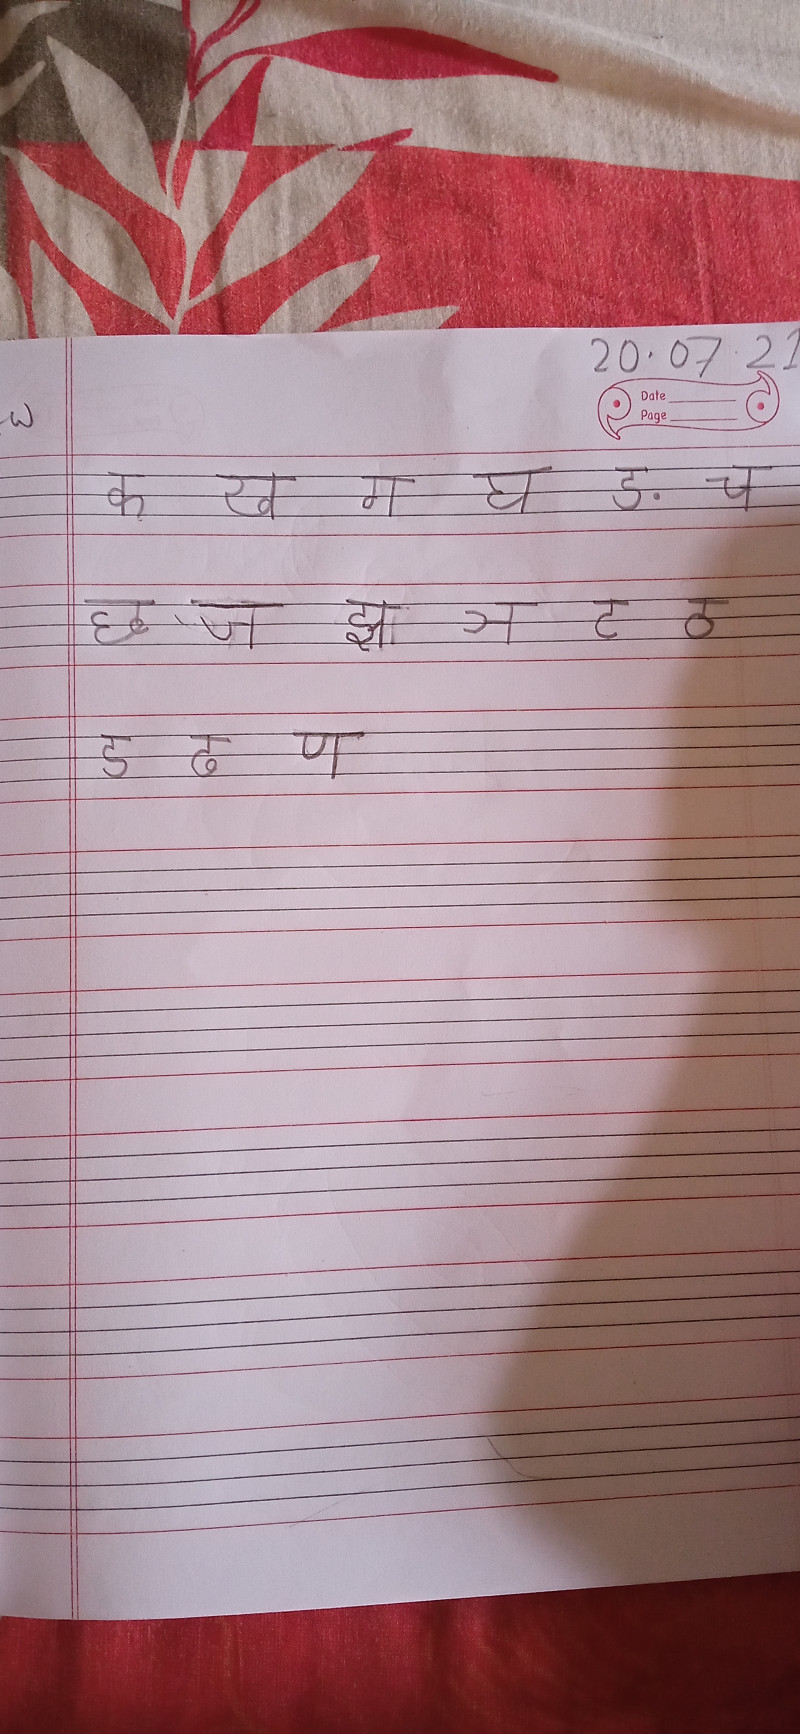 20.07.21
Date
Page
w
क ख ग घ ङ च
छ ज झ ञ ट ठ
ड ढ ण